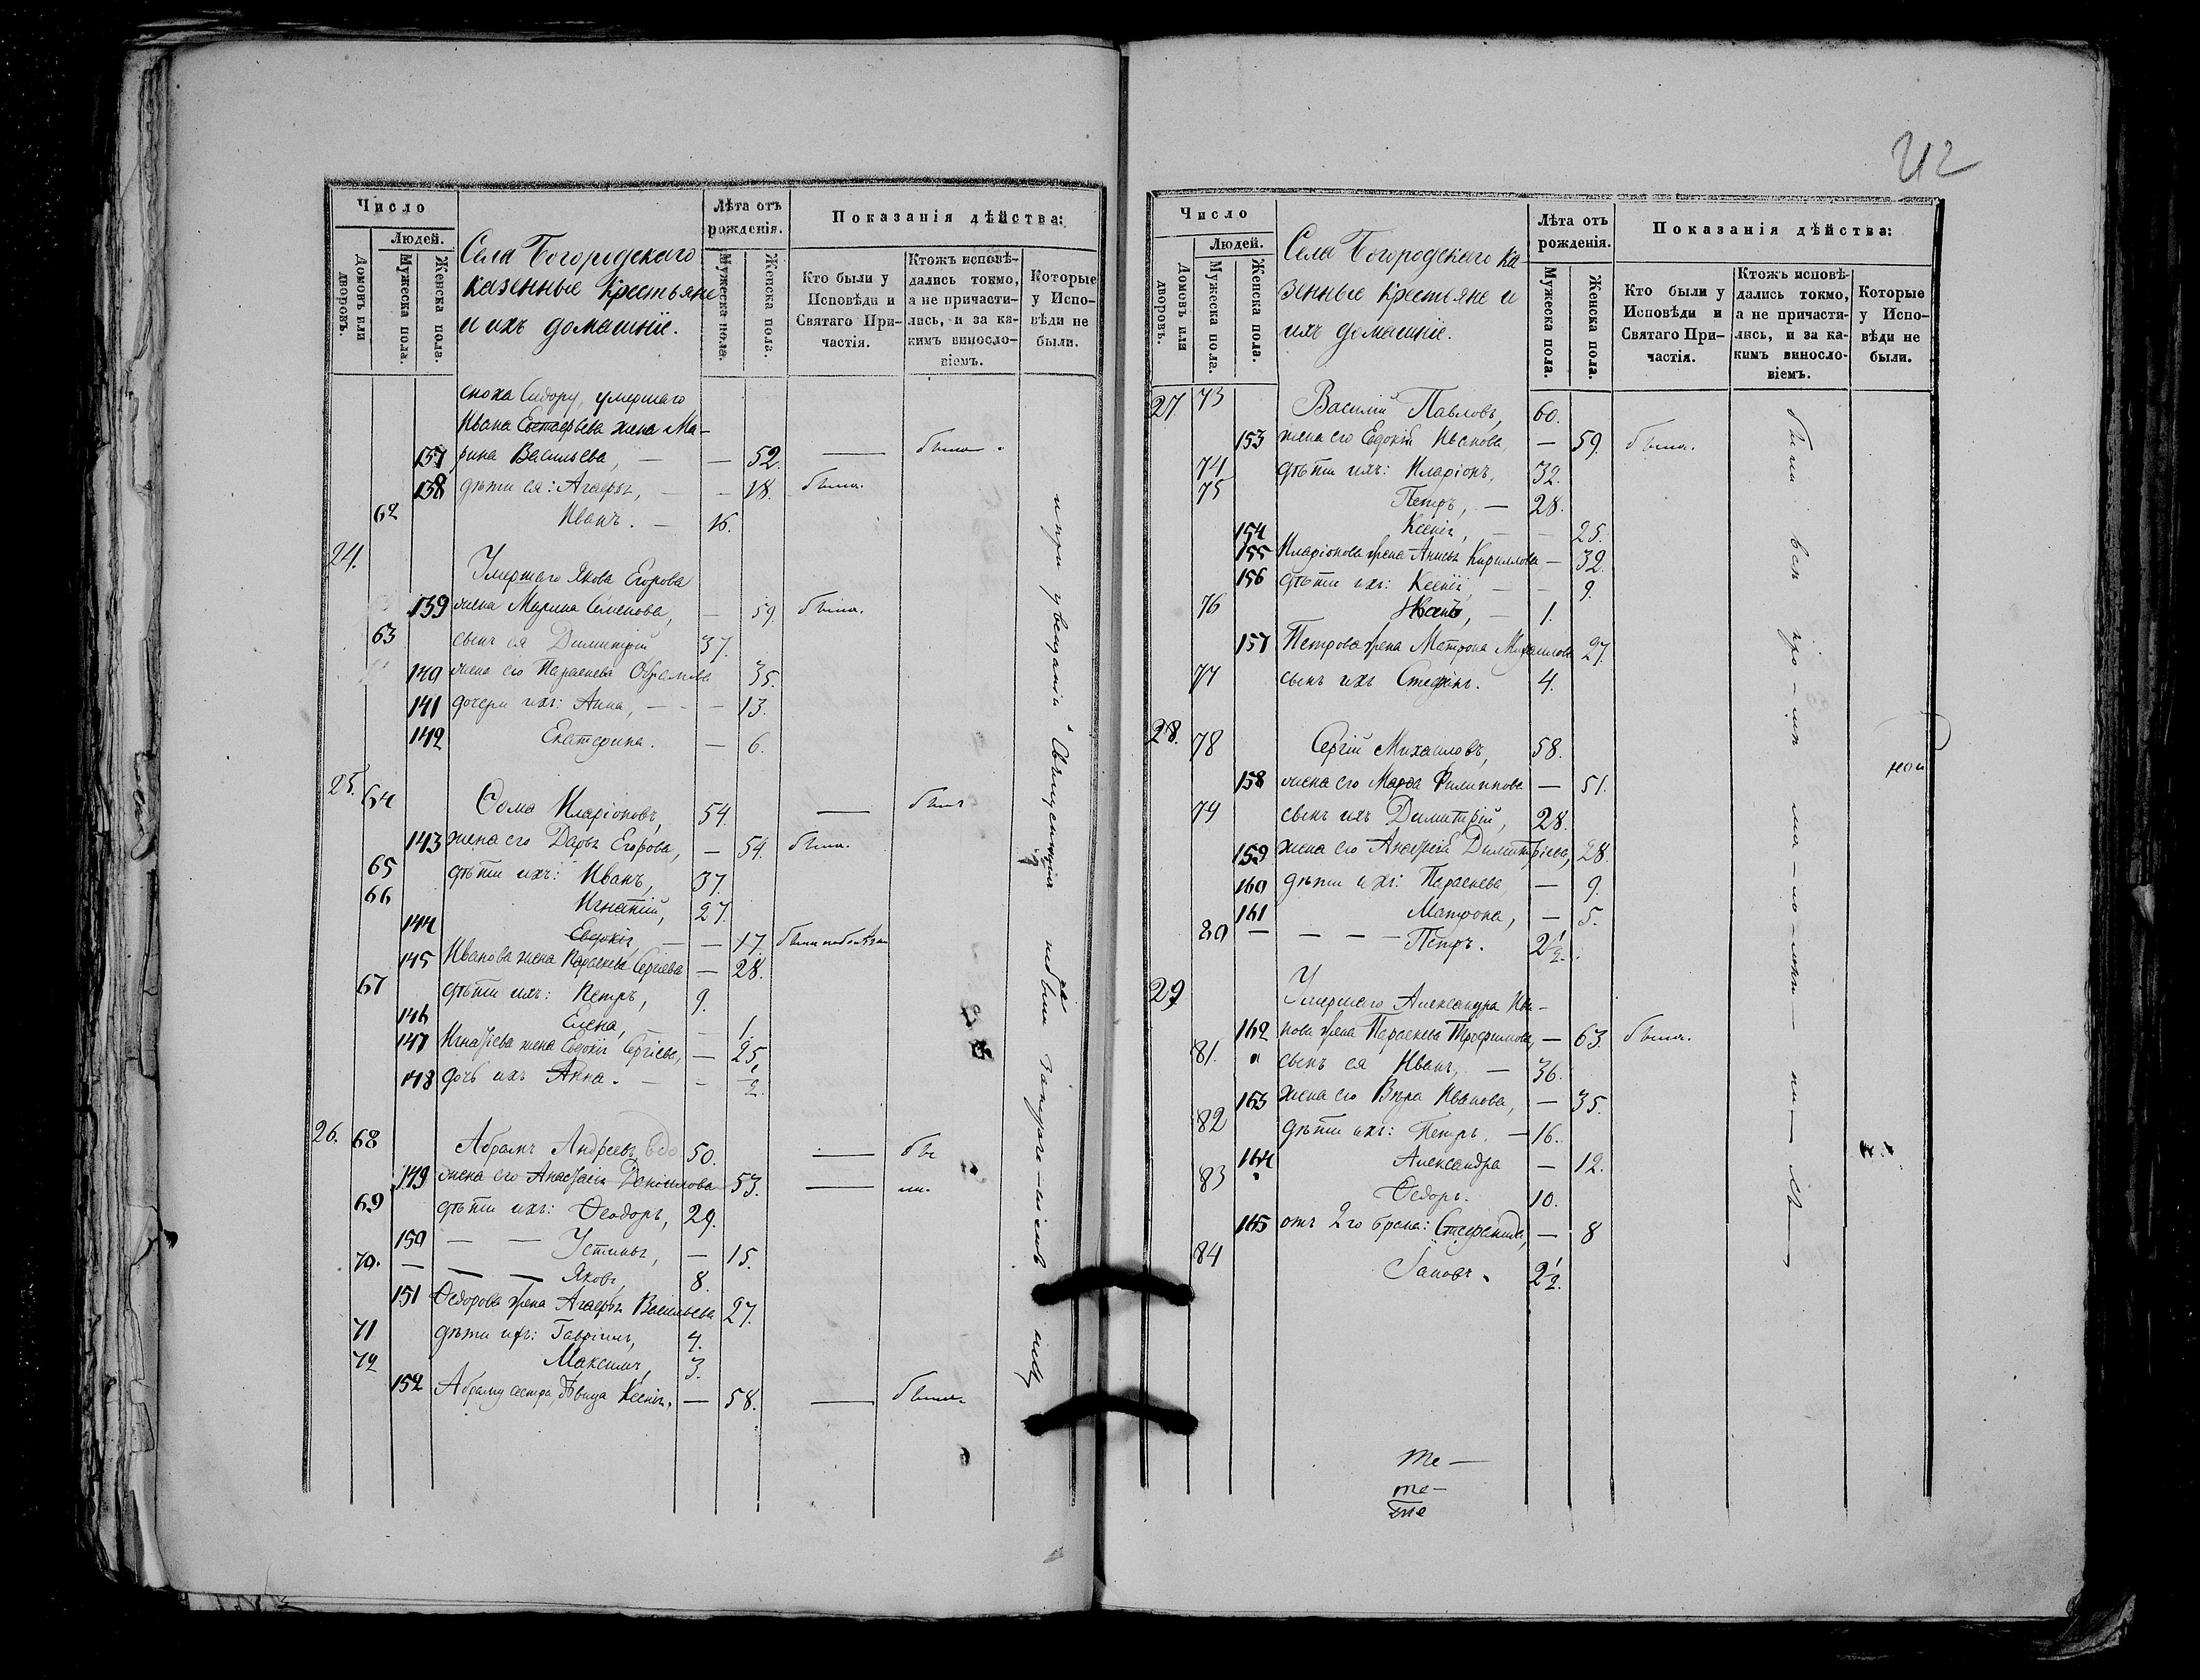 Число
Людей.
Домовъ или дворовъ.
Мужеска пола.
Женска пола.
Села Богородскаго
казенные крестьяне
и ихъ домашніе.
Лѣта отъ рожденія.
Мужеска пола.
Женска пола.
Показанія дѣйства:
Кто были у Исповѣди и Святаго Причастія.
Ктожъ исповѣдались токмо, а не причастились, и за какимъ винословіемъ.
Которые у Исповѣди не были.
сноха Сидору, умершаго
Ивана жена Ма-
137 рина Васильева, — — 52. — была.
138 дѣти ея: Агафья, — — 18. была.
62 Иванъ. — 16.
24. Умершаго Якова Егорова
139 жена Марина Семенова, — 59. была.
63 сынъ ея Димитрій 37.
140 жена его Параскева 35.
141 дочери ихъ: Анна, — — — 13.
142 Екатерина. — 6.
25. 64 Ѳома Иларіоновъ, 54. — былъ
143 жена его Дарья Егорова, — 54. была.
65 дѣти ихъ: Иванъ, 37.
66 Игнатій, 27.
144 Евдокія, — — 17.
145 Иванова жена Параскева Сергіева — 28.
67 дѣти ихъ: Петръ, 9.
146 Елена, — — 1.
147 Игнатіева жена Евдокія Сергіева, — 25.
148 дочь ихъ Анна. — — 1/2.
26. 68 Абрамъ Андреевъ 50. —
149 жена его Анастасія Данилова 53. —
69 дѣти ихъ: Ѳеодоръ, 29.
150 — — Устинья, — 15.
70. — — — Яковъ, 8.
151 Ѳедорова жена Агафья Васильева 27.
71 дѣти ихъ: Гавріилъ, 4.
72 Максимъ, 3.
152 Абраму сестра, дѣвица Ксенія. — 58. — была.
42
Число
Людей.
Домовъ или дворовъ.
Мужеска пола.
Женска пола.
Села Богородскаго ка
зенные крестьяне и
ихъ домашніе.
Лѣта отъ рожденія.
Мужеска пола.
Женска пола.
Показанія дѣйства:
Кто были у Исповѣди и Святаго Причастія.
Ктожъ исповѣдались токмо, а не причастились, и за какимъ винословіемъ.
Которые у Исповѣди не были.
27 73 Василій Павловъ, 60.
153 жена его Евдокія Иванова, — 59. была.
74 дѣти ихъ: Иларіонъ, 32.
75 Петръ, — 28.
154 Ксенія, — — 25.
155 Иларіонова жена Анисья Кириллова — 32.
156 дѣти ихъ: Ксенія, — — 9.
76 — 1.
157 Петрова жена Матрона Михаилова 27.
77 сынъ ихъ Стефанъ. 4.
28. 78 Сергій Михаиловъ, 58.
158 жена его Марѳа Филиппова — 51.
79 сынъ ихъ Димитрій, 28.
159 жена его Анастасія Димитріева, 28.
160 дѣти ихъ: Параскева, — 9.
161 Матрона, — 5.
80 — — — — Петръ. 2 1/2.
29 Умершаго Александра Ива-
162 нова жена Параскева Трофимова, — 63. была.
81. сынъ ея Иванъ, — 36.
163 жена его Вѣра Иванова, — 35.
82 дѣти ихъ: Петръ. — 16.
164 Александра — 12.
83 Ѳедоръ. 10.
165 отъ 2го брака: Стефанида, — 8
84 Іаковъ. 2 1/2.